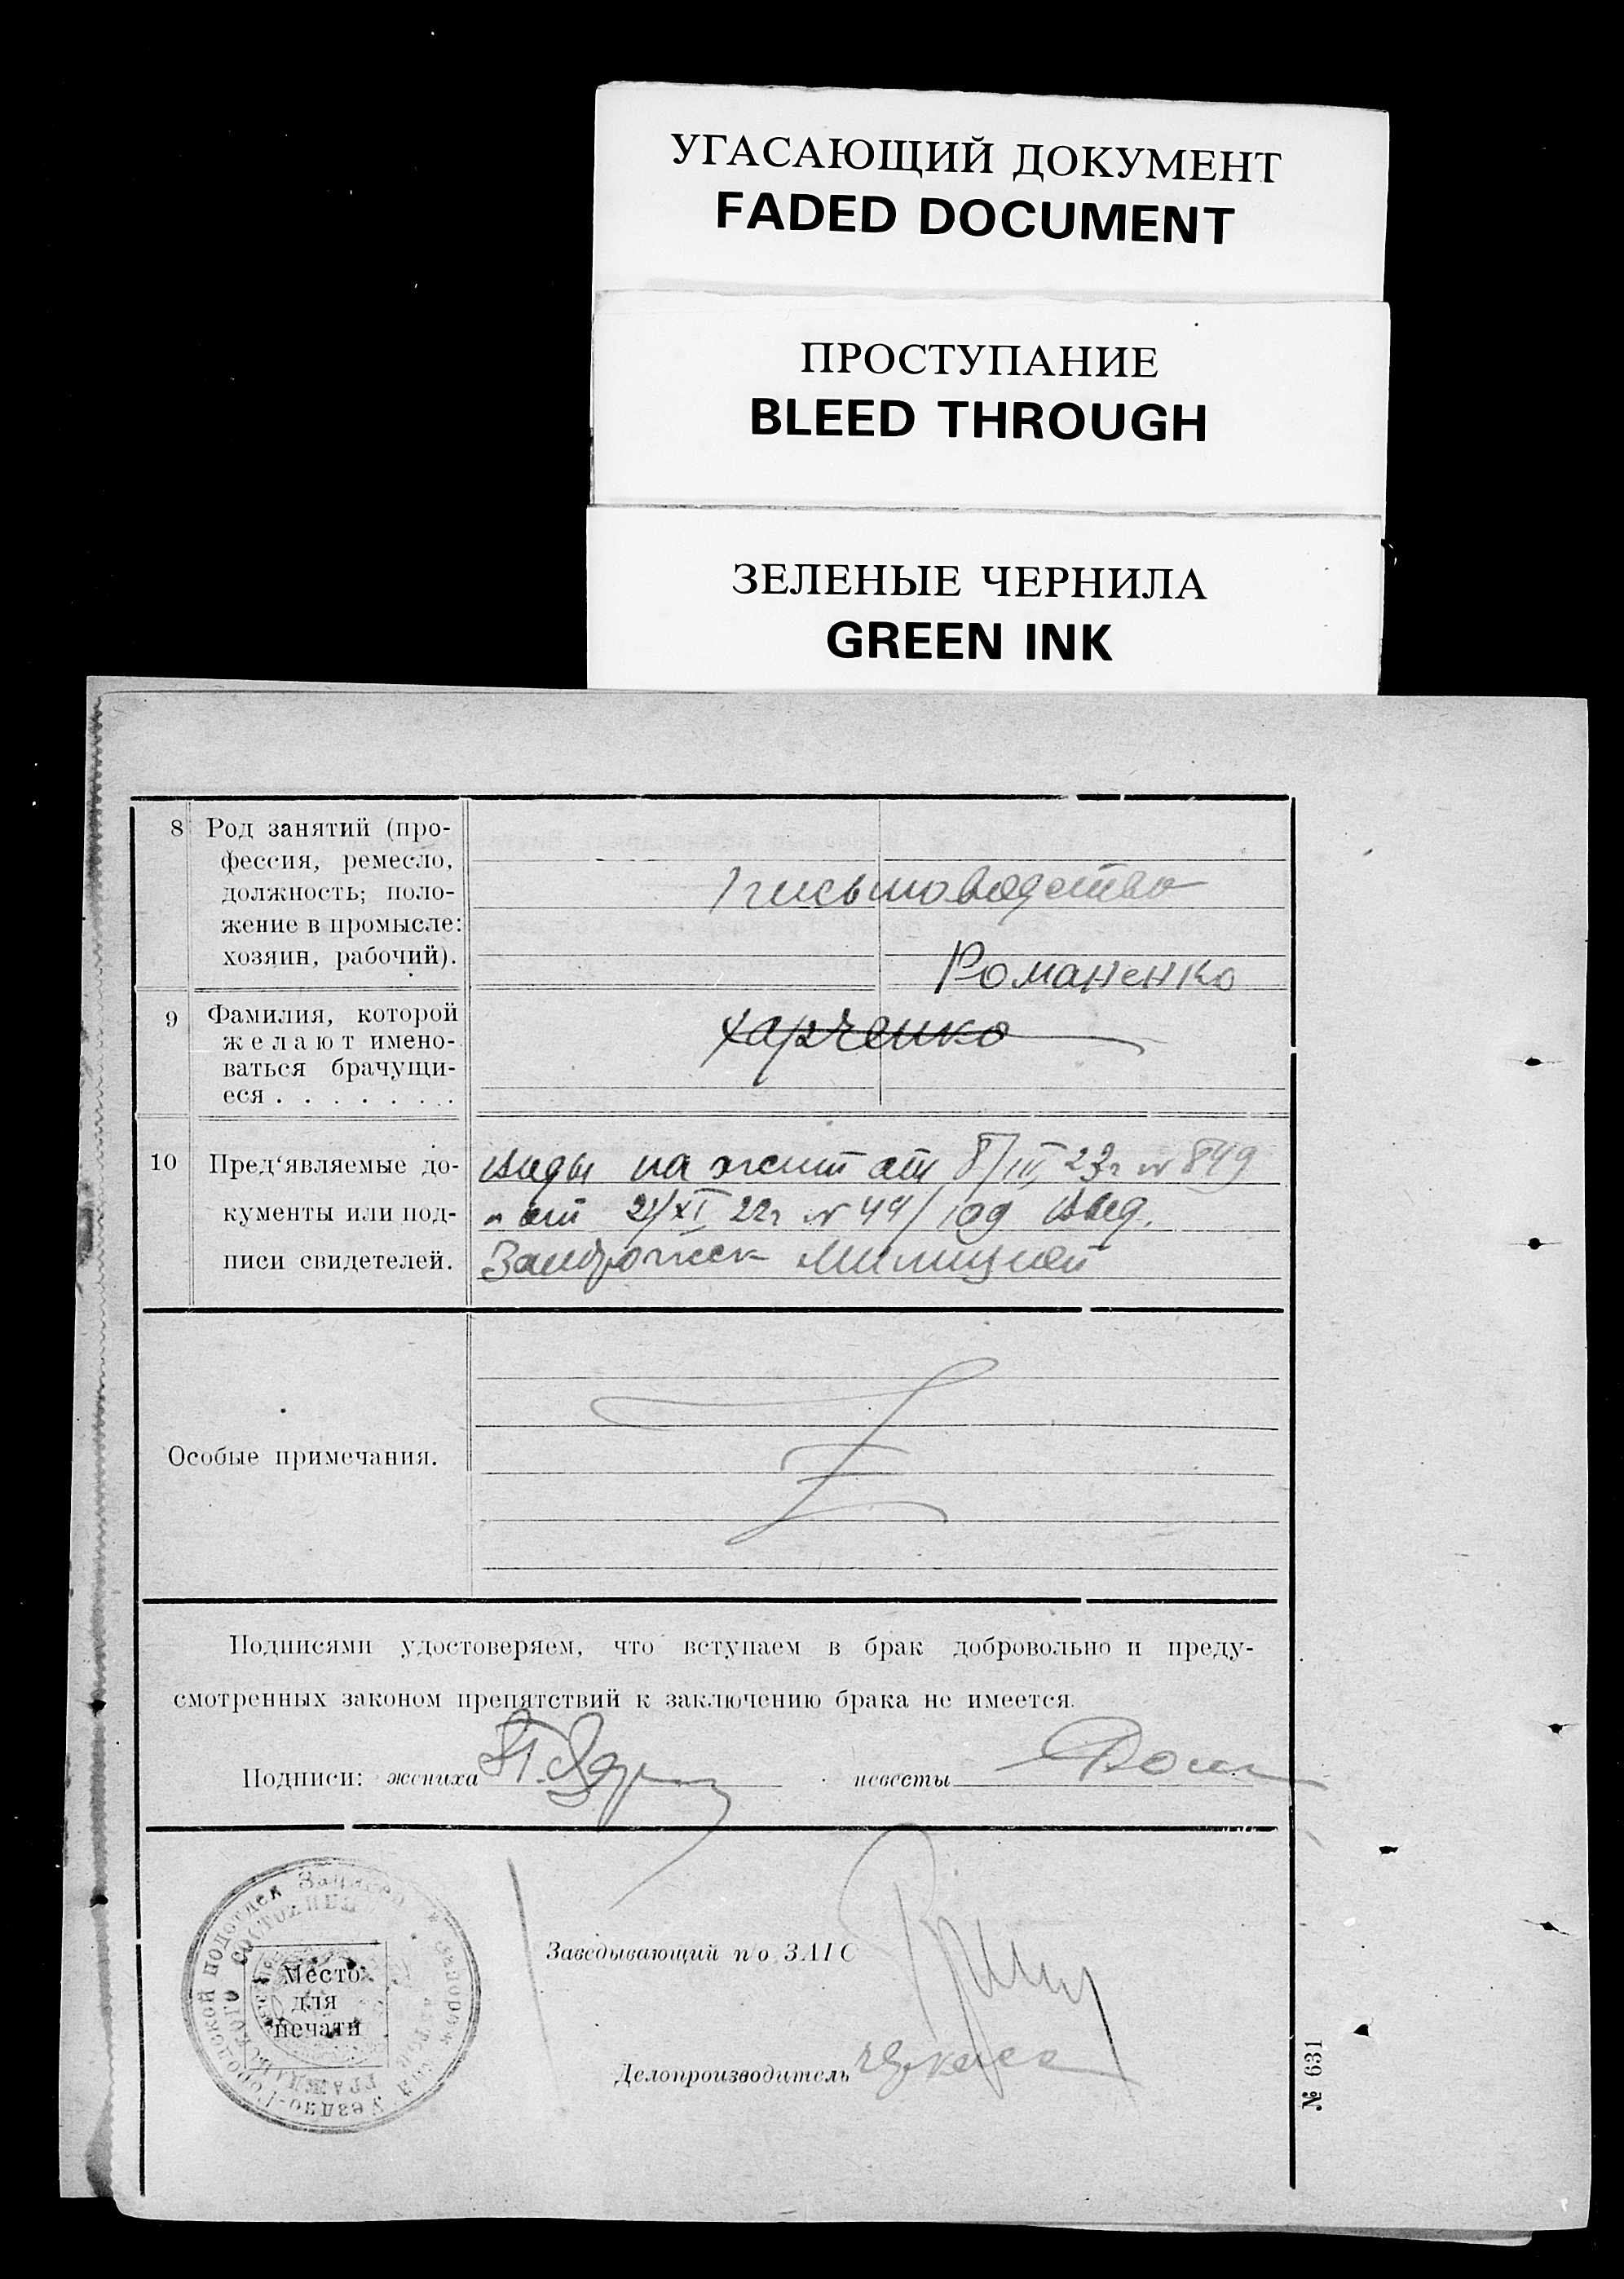 УГАСАЮЩИЙ ДОКУМЕНТ
FADED DOCUMENT
ПРОСТУПАНИЕ
BLEED THROUGH
ЗЕЛЕНЫЕ ЧЕРНИЛА
GREEN INK
8 Род занятий (про-
фессия, ремесло,
должность; поло-
жение в промысле:
хозяин, рабочий).
письмоводство
Романенко
9 Фамилия, которой
желают имено-
ваться брачущи-
еся . . . . . . .
Харченко
10 Пред‘являемые до-
кументы или под-
писи свидетелей.
виды на жит от 8/III 23г № 849
и от 21/XI 22г № 44/ выд.
Запорожск Милицией
Особые примечания.
Подписями удостоверяем, что вступаем в брак добровольно и преду-
смотренных законом препятствий к заключению брака не имеется.
Подписи: жениха невесты
Место
для
печати
Заведывающий п/о ЗАГС
Делопроизводитель
№ 631